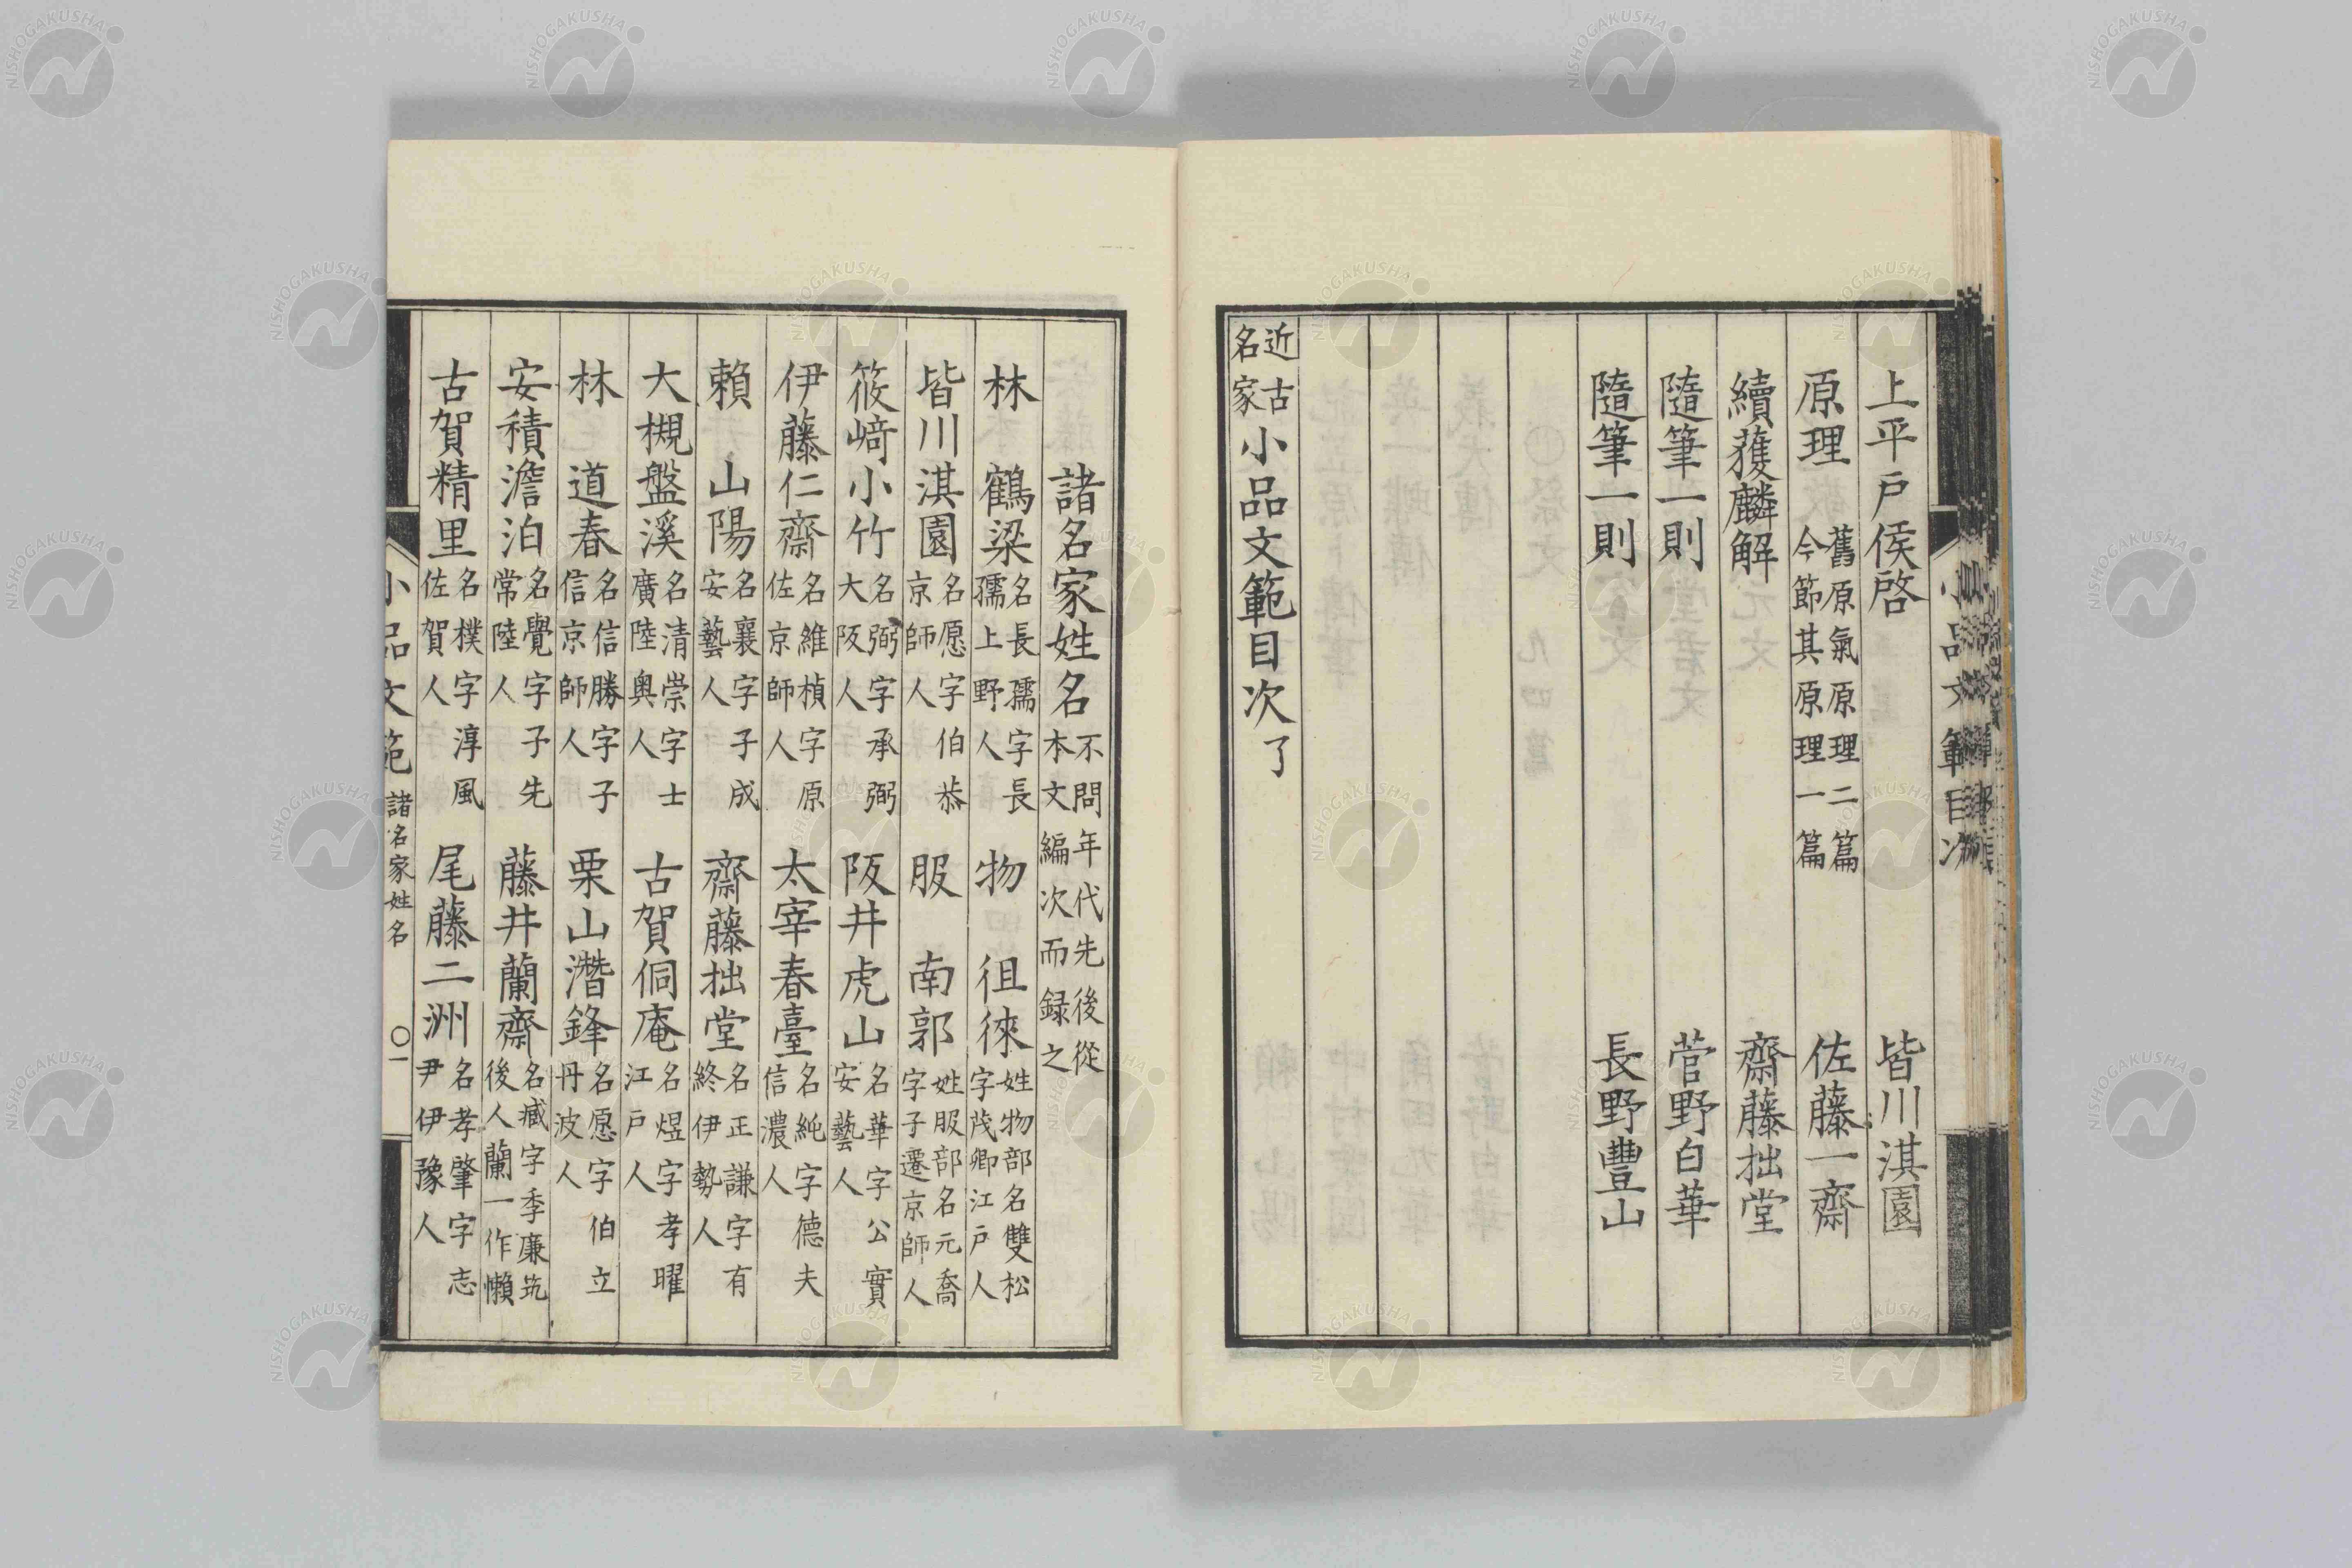 上平戸侯啓 皆川淇園
原理 舊原氣原理二篇今節其原理一篇 佐藤一齋
續獲麟解 齋藤拙堂
隨筆一則 菅野白華
隨筆一則 長野豐山
近古名家小品文範目次了
諸名家姓名 不問年代先後從本文編次而録之
林鶴梁 名長孺字長孺上野人 物徂徠 姓物部名雙松字茂卿江戸人
皆川淇園 名愿字伯恭京師人 服南郭 姓服部名元喬字子遷京師人
筱﨑小竹 名弼字承弼大阪人 阪井虎山 名華字公實安藝人
伊藤仁齋 名維楨字原佐京師人 太宰春臺 名純字德夫信濃人
賴山陽 名襄字子成安藝人 齋藤拙堂 名正謙字有終伊勢人
大槻盤溪 名清崇字士廣陸奧人 古賀侗庵 名煜字孝曜江戸人
林道春 名信勝字子信京師人 栗山潛鋒 名愿字伯立丹波人
安積澹泊 名覺字子先常陸人 藤井蘭齋 名臧字季廉筑後人蘭一作懶
古賀精里 名樸字淳風佐賀人 尾藤二洲 名孝肇字志尹伊豫人
小品文範 諸名家姓名 〇一
小品文範目次
NISHOGAKUSHA